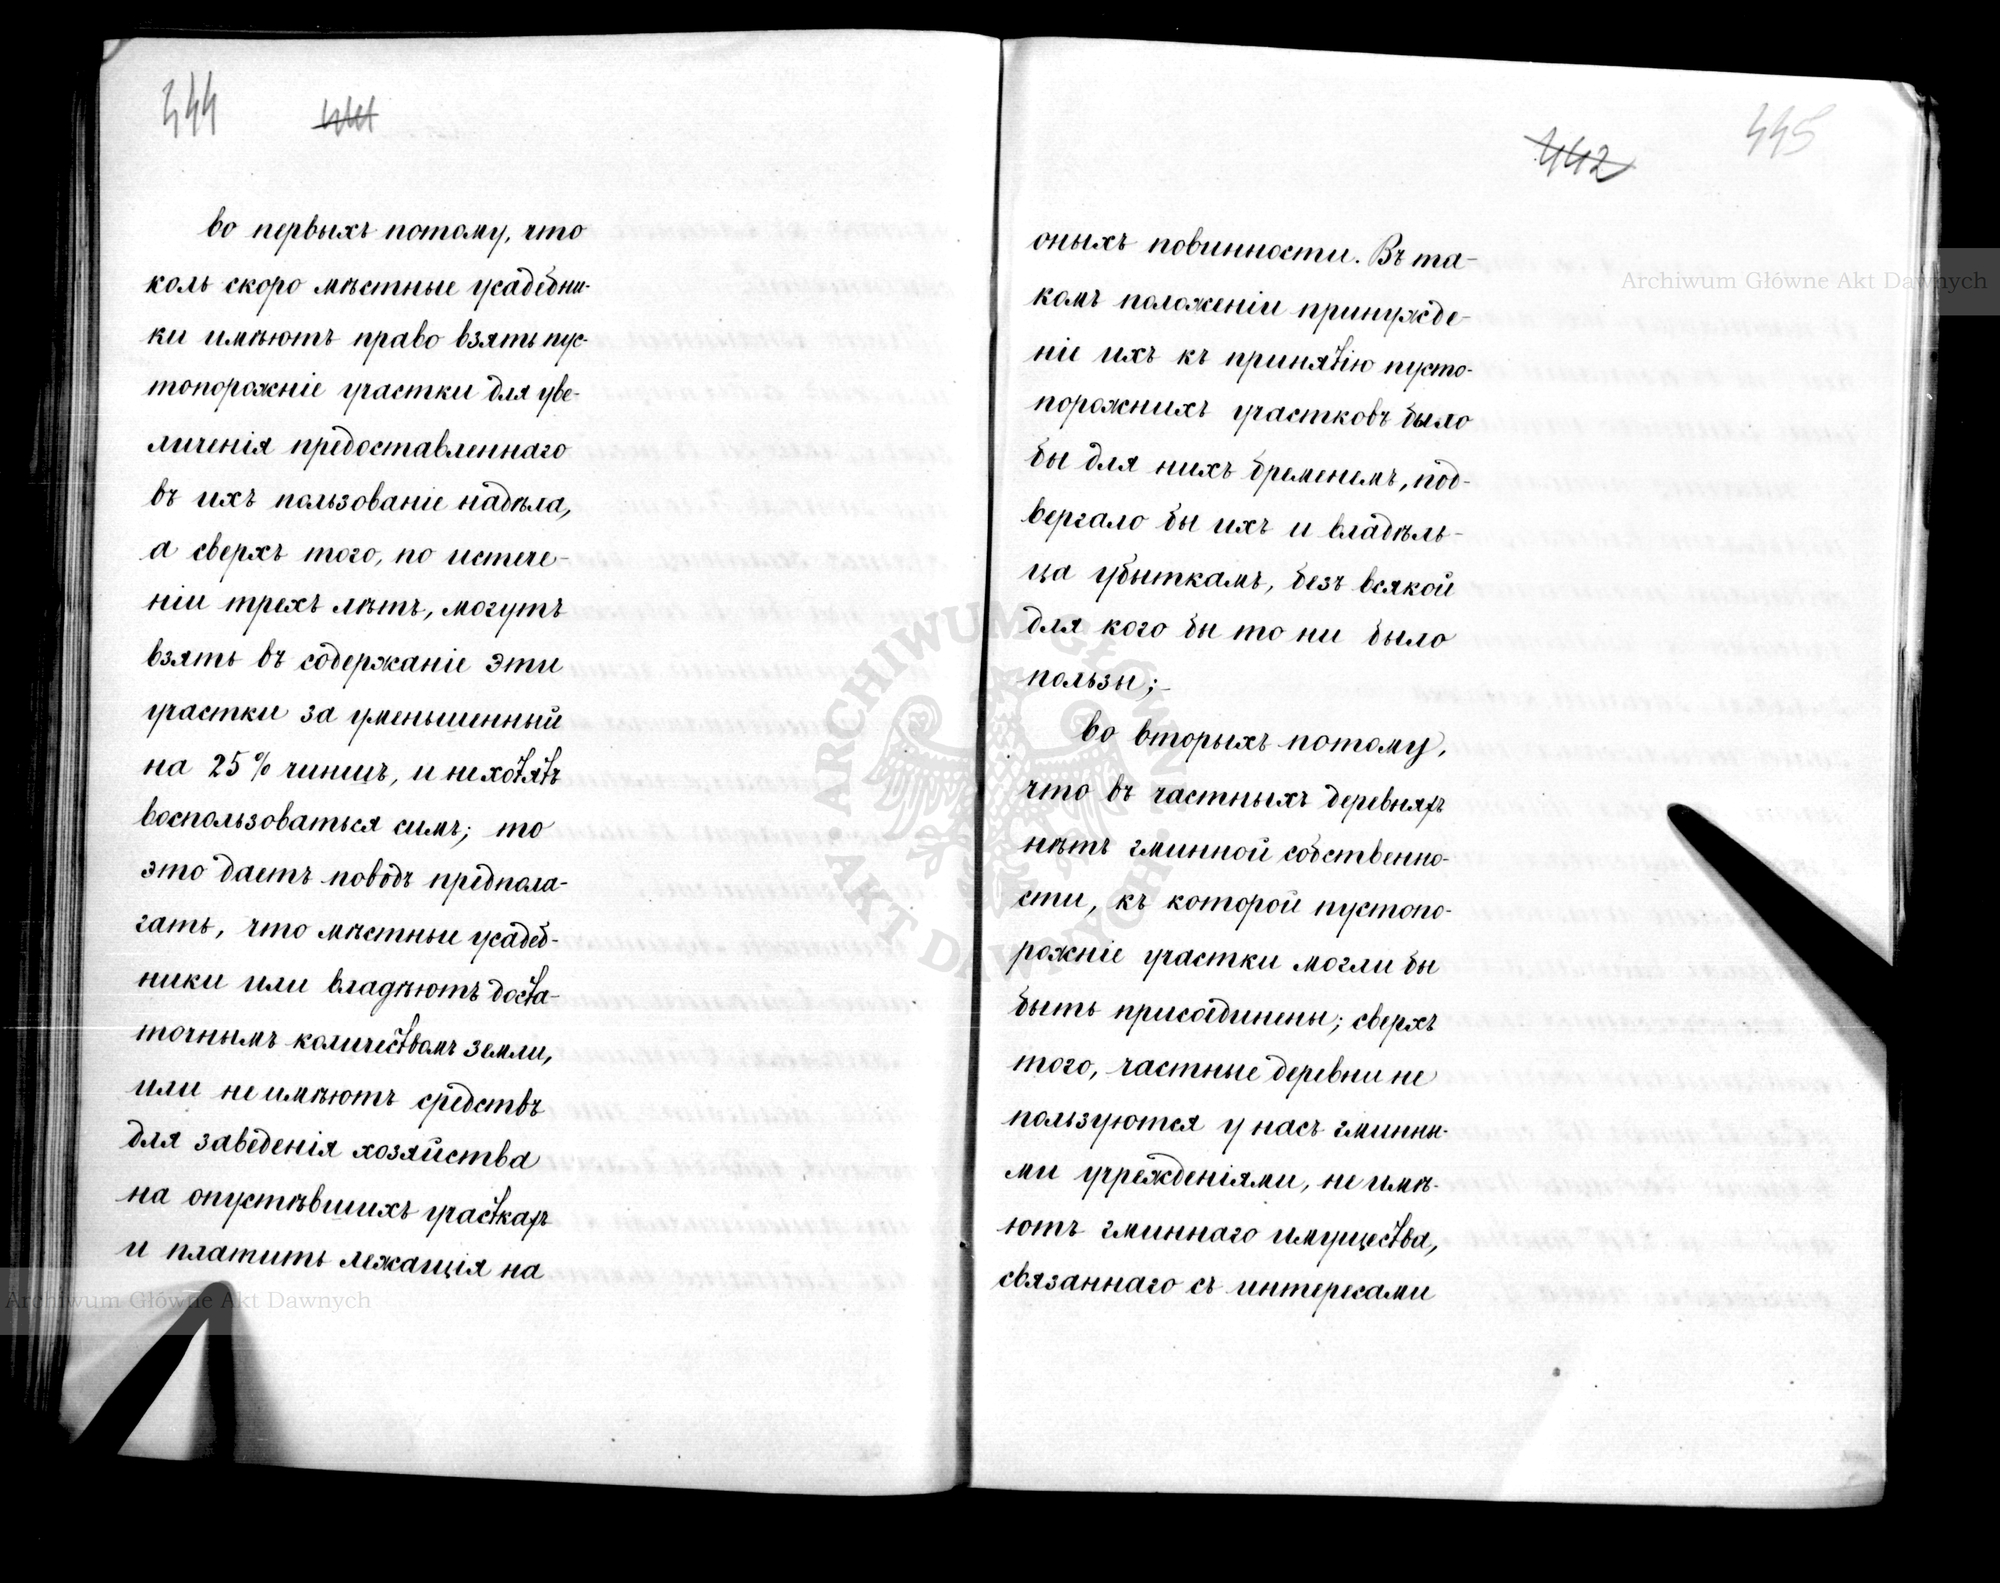 444 441
во первыхъ потому, что
коль скоро мѣстные усадебни-
ки имѣютъ право взять пус-
топорожніе участки для уве-
личенія предоставленнаго
въ ихъ пользованіе надѣла,
а сверхъ того, по истече-
ніи трехъ лѣтъ, могутъ
взять въ содержаніе эти
участки за уменьшенный
на 25% чиншъ, и не хотятъ
воспользоваться симъ; то
это даетъ поводъ предпола-
гать, что мѣстные усадеб-
ники или владѣютъ доста-
точнымъ количествомъ земли,
или не имѣютъ средствъ
для заведенія хозяйства
на опустѣвшихъ участкахъ
и платить лежащія на
442 445
оныхъ повинности. Въ та-
комъ положеніи принужде-
ніе ихъ къ принятію пусто-
порожнихъ участковъ было
бы для нихъ бременемъ, под-
вергало бы ихъ и владѣль-
ца убыткамъ, безъ всякой
для кого бы то ни было
пользы;
во вторыхъ потому,
что въ частныхъ деревняхъ
нѣтъ гминной собственно-
сти, къ которой пустопо-
рожніе участки могли бы
быть присоединены; сверхъ
того, частные деревни не
пользуются у насъ гминны-
ми учрежденіями, не имѣ-
ютъ гминнаго имущества,
связаннаго съ интересами
Archiwum Główne Akt Dawnych
ARCHIWUM GŁÓWNE AKT DAWNYCH
Archiwum Główne Akt Dawnych